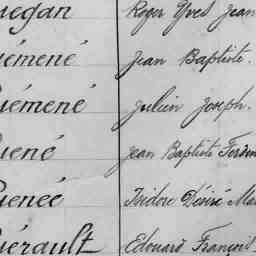 Roger Yves Jean
émené Jean Baptiste.
émené Julien Joseph.
ené Jean Baptiste Ferdin
enée Isidore Désiré Ma
érault Edouard François